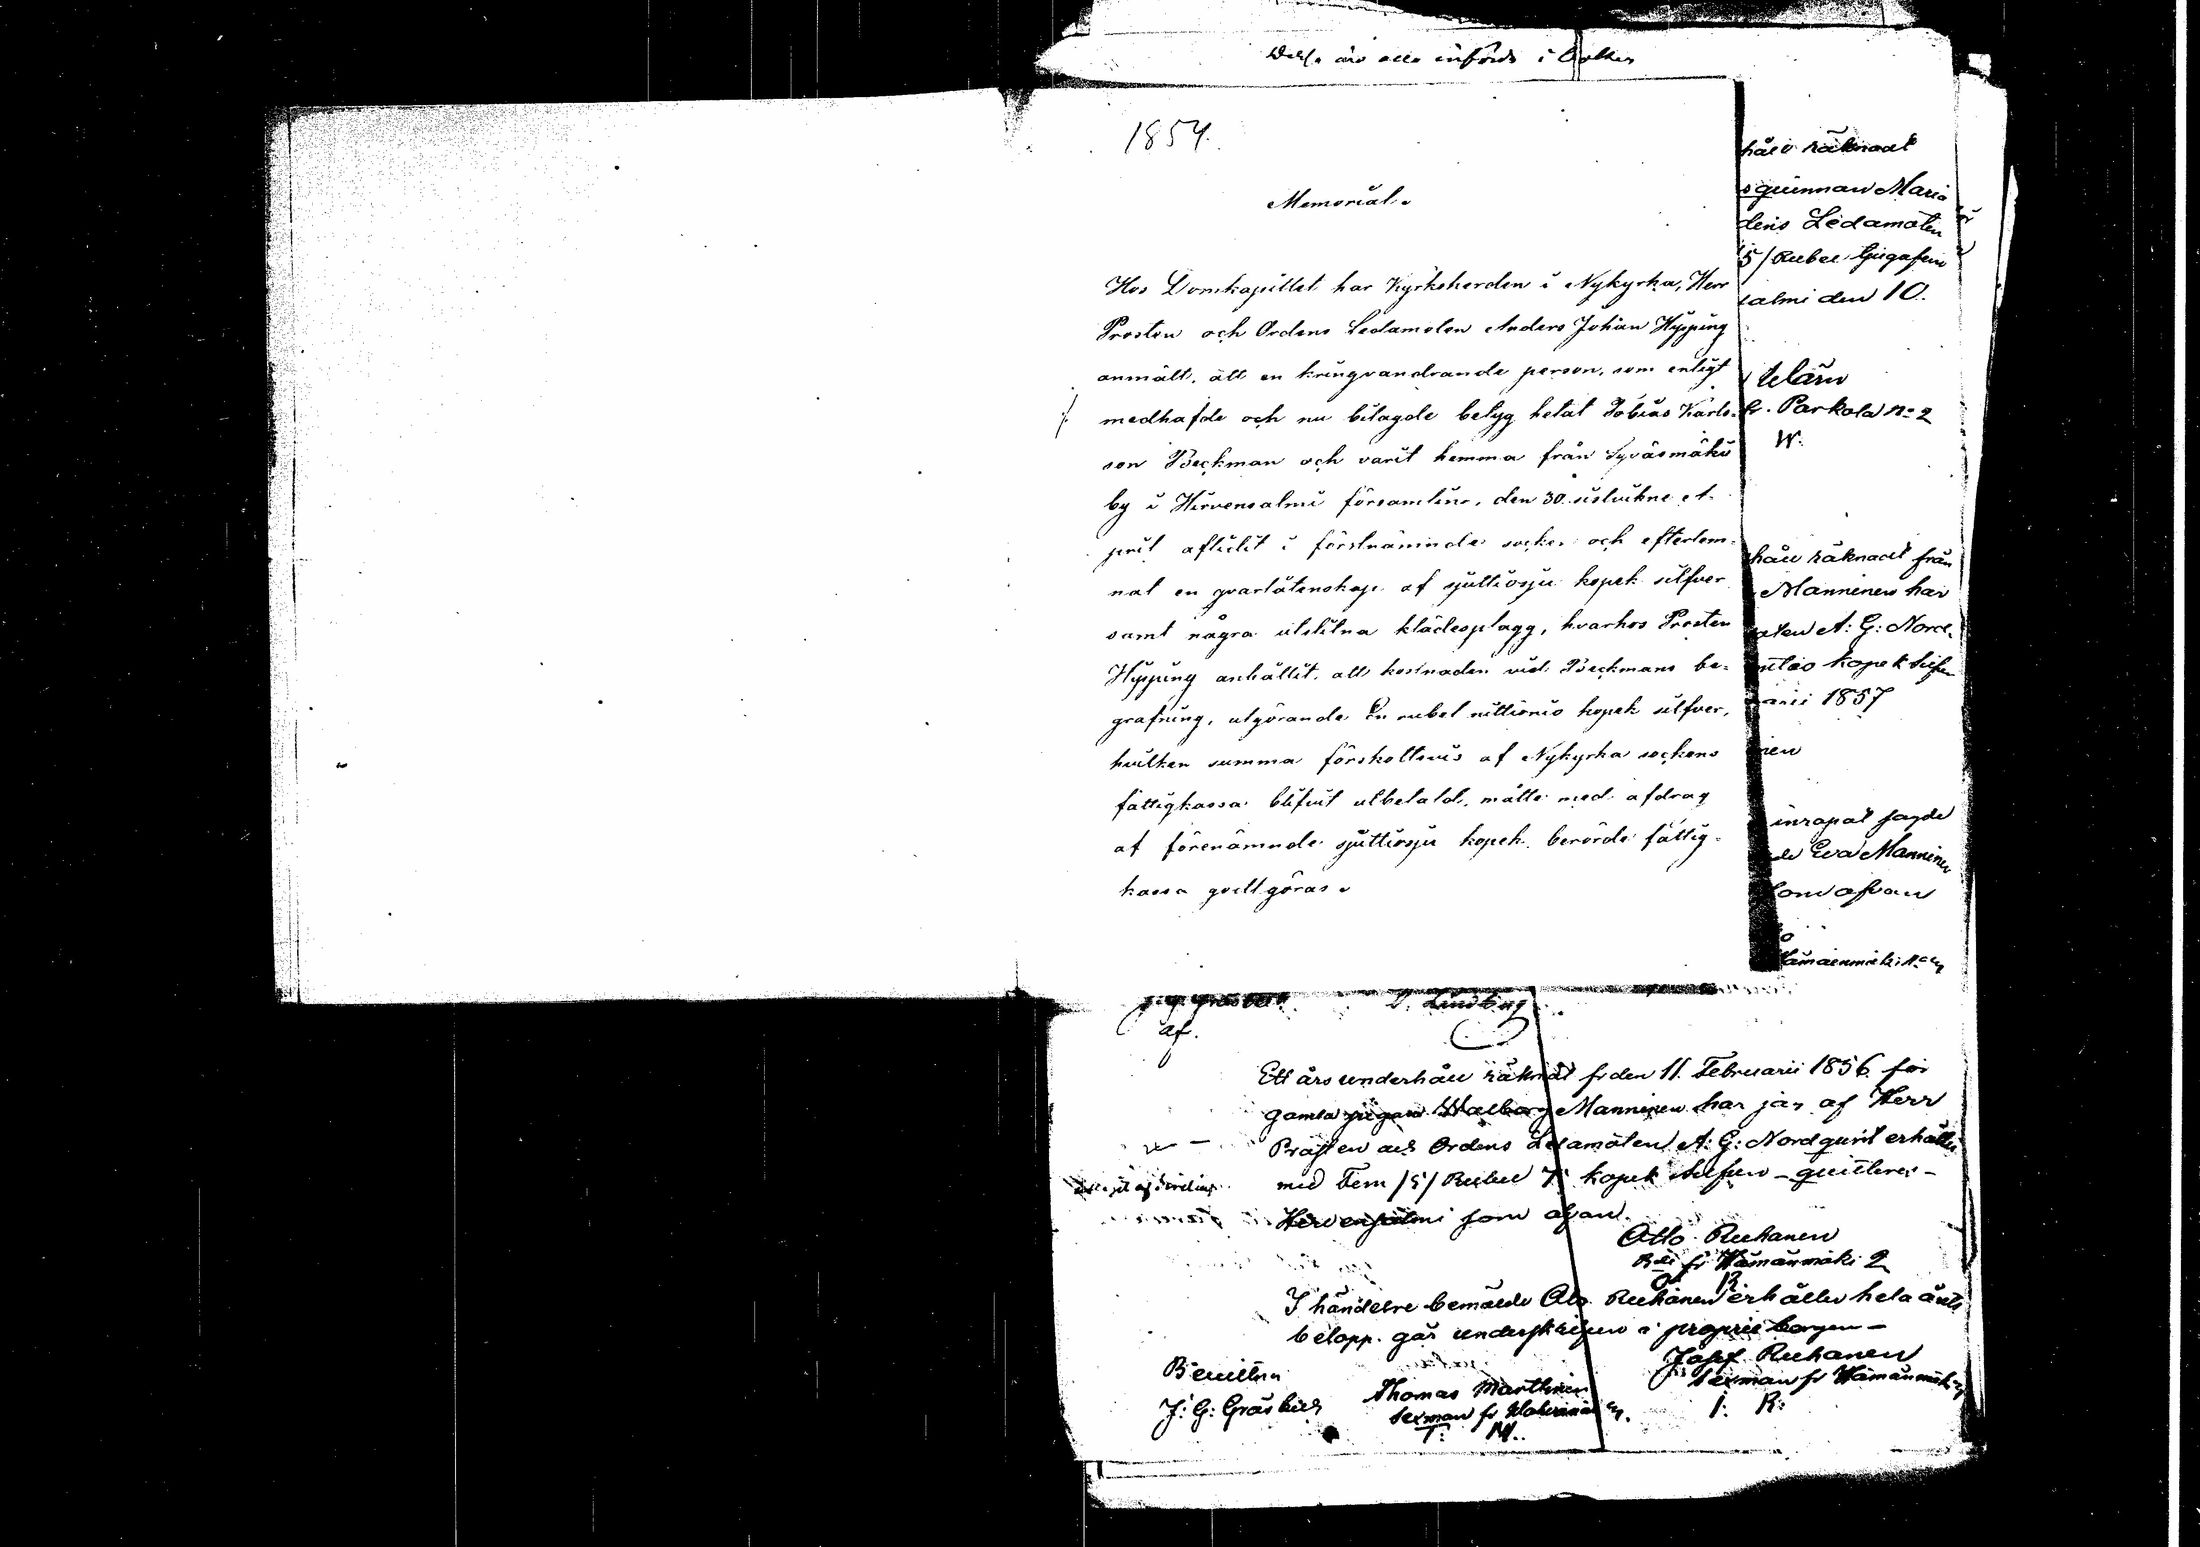 Desse äro alla införda i boken
1854.
Memorial.
Hos Domkapitlet har Kyrkoherden i Nykyrka, Herr
Prosten och Ordens Ledamoten Anders Johan Hipping
anmält, att en kringvandrande person, som enligt
medhafde och nu bilagde betyg hetat Tobias Karls-
son Beckman och varit hemma från Syväsmäki
by i Hirvensalmi församling, den 30 sistvikne A-
pril aflidit i förstnämnde socken och efterlem-
nat en qvarlåtenskap af sjuttiosju kopek silfver
samt några utslitna klädesplagg, hvarhos Prosten
Hipping anhållit, att kostnaden vid Beckmans be-
grafning, utgörande En rubel nittionio kopek silfver,
hvilken summa förskottsvis af Nykyrka sockens
fattigkassa blifvit utbetald, måtte med afdrag
af förenämnde sjuttiosju kopek berörde fattig-
kassa godtgöras.
håll räknadt
qvinnan Maria
dens Ledamoten
5/ Rubel
salmi den 10.
Parkola No 2
W.
håll räknadt från
Manninen har
oten A: G: Nord-
kopek Silfver
arii 1857
nen
Eva Manninen
som ofvan
D. Lindberg
af.
Ett års underhåll räknat fr den 11. Februarii 1856 för
gamla pigan Walborg Manninen har jag af Herr
Prosten och Ordens Ledamoten A: G: Nordqvist erhållit
med Fem /5/ Rubel 7 kopek Silfver – qvitteras –
Hirvensalmi som ofvan.
Otto Ruhanen
fr Hämänmäki 2
O R.
I händelse bemälde Otto Ruhanen erhåller hela årets
belopp går underskrifven i proprie borgen –
Josef Ruhanen
Sexman fr Hämänmäki
I: R:
Bevittna
J: G: Gråsten
Thomas Marttinen
Sexman fr
T: M.